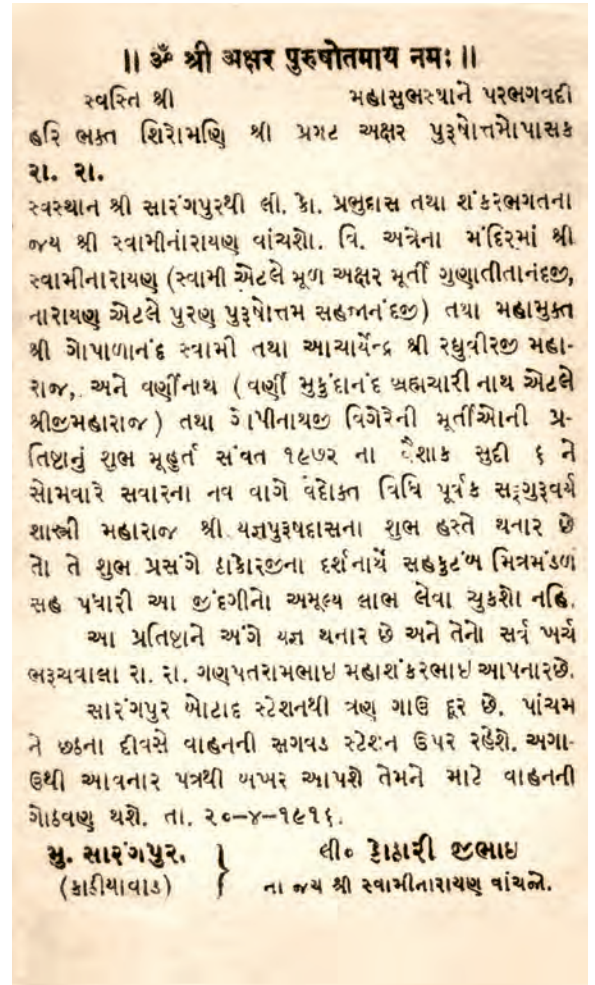 ॥ ૐ શ્રી અક્ષર પુરુષોતમાય નમઃ ॥
સ્વસ્તિ શ્રી મહાસુભસ્થાને પરભગવદી
હરિ ભક્ત શિરોમણિ શ્રી પ્રગટ અક્ષર પુરૂષોત્તમોપાસક
રા. રા.
સ્વસ્થાન શ્રી સારંગપુરથી લી. કો. પ્રભુદાસ તથા શંકરભગતના
જય શ્રી સ્વામીનારાયણ વાંચશો. વિ. અત્રેના મંદિરમાં શ્રી
સ્વામીનારાયણ (સ્વામી એટલે મૂળ અક્ષર મૂર્તી ગુણાતીતાનંદજી,
નારાયણ એટલે પુરણ પુરૂષોત્તમ સહજાનંદજી) તથા મહામુક્ત
શ્રી ગોપાળાનંદ સ્વામી તથા આચાર્યેન્દ્ર શ્રી રઘુવીરજી મહા-
રાજ, અને વર્ણીનાથ (વર્ણી મુકુંદાનંદ બ્રહ્મચારી નાથ એટલે
શ્રીજીમહારાજ) તથા ગોપીનાથજી વિગેરેની મૂર્તીઓની પ્ર-
તિષ્ટાનું શુભ મૂહુર્ત સંવત ૧૯૭૨ ના વૈશાક સુદી ૬ ને
સોમવારે સવારના નવ વાગે વેદોક્ત વિધિ પૂર્વક સદ્ગુરૂવર્ય
શાસ્ત્રી મહારાજ શ્રી યજ્ઞપુરૂષદાસના શુભ હસ્તે થનાર છે
તો તે શુભ પ્રસંગે ઠાકોરજીના દર્શનાર્થે સહકુટંબ મિત્રમંડળ
સહ પધારી આ જીંદગીનો અમૂલ્ય લાભ લેવા ચુકશો નહિ.
આ પ્રતિષ્ટાને અંગે યજ્ઞ થનાર છે અને તેનો સર્વ ખર્ચ
ભરૂચવાલા રા. રા. ગણપતરામભાઇ મહાશંકરભાઇ આપનારછે.
સારંગપુર બોટાદ સ્ટેશનથી ત્રણ ગાઉ દૂર છે. પાંચમ
ને છઠના દીવસે વાહનની સગવડ સ્ટેશન ઉપર રહેશે. અગા-
ઉથી આવનાર પત્રથી ખબર આપશે તેમને માટે વાહનની
ગોઠવણ થશે. તા. ૨૦-૪-૧૯૧૬.
મુ. સારંગપુર. } લી૦ કોઠારી જીભાઇ
(કાઠીયાવાડ) ના જય શ્રી સ્વામીનારાયણ વાંચજો.